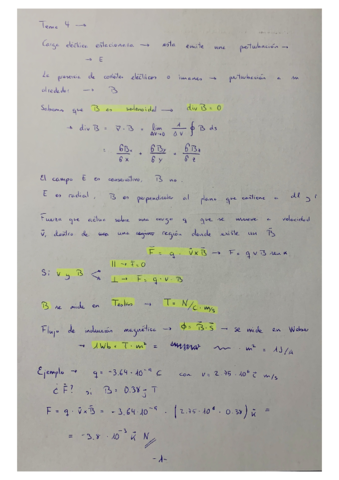 Tema 4 →
Carga eléctrica estacionaria → esta emite una perturbación →
→ E
La presencia de corrientes eléctricas o imanes → perturbación a su
alrededor → B
Sabemos que B es solenoidal → div B = 0
* div B = ∇ · B = lim Δv→0 1/Δv ∮ B ds
= δBx/δx + δBy/δy + δBz/δz
El campo E es conservativo. B no.
E es radial. B es perpendicular al plano que contiene a dl y r
Fuerza que actúa sobre una carga q que se mueve a velocidad
v, dentro de una región donde existe un B
F = q · v x B → F = q v B sen α
Si v y B
|| → F = 0
⊥ → F = q · v · B
B se mide en Teslas → T = N/C·m/s
Flujo de inducción magnética → ϕ = B · S → se mide en Webers
→ 1 Wb = T · m² = · m² = 1 J/A
Ejemplo → q = -3.64 · 10⁻⁹ C con v = 2.75 · 10⁶ i m/s
¿ F? si B = 0.38 j T
F = q · v x B = -3.64 · 10⁻⁹ · (2.75 · 10⁶ · 0.38) k =
= -3.8 · 10⁻³ k N
-1-